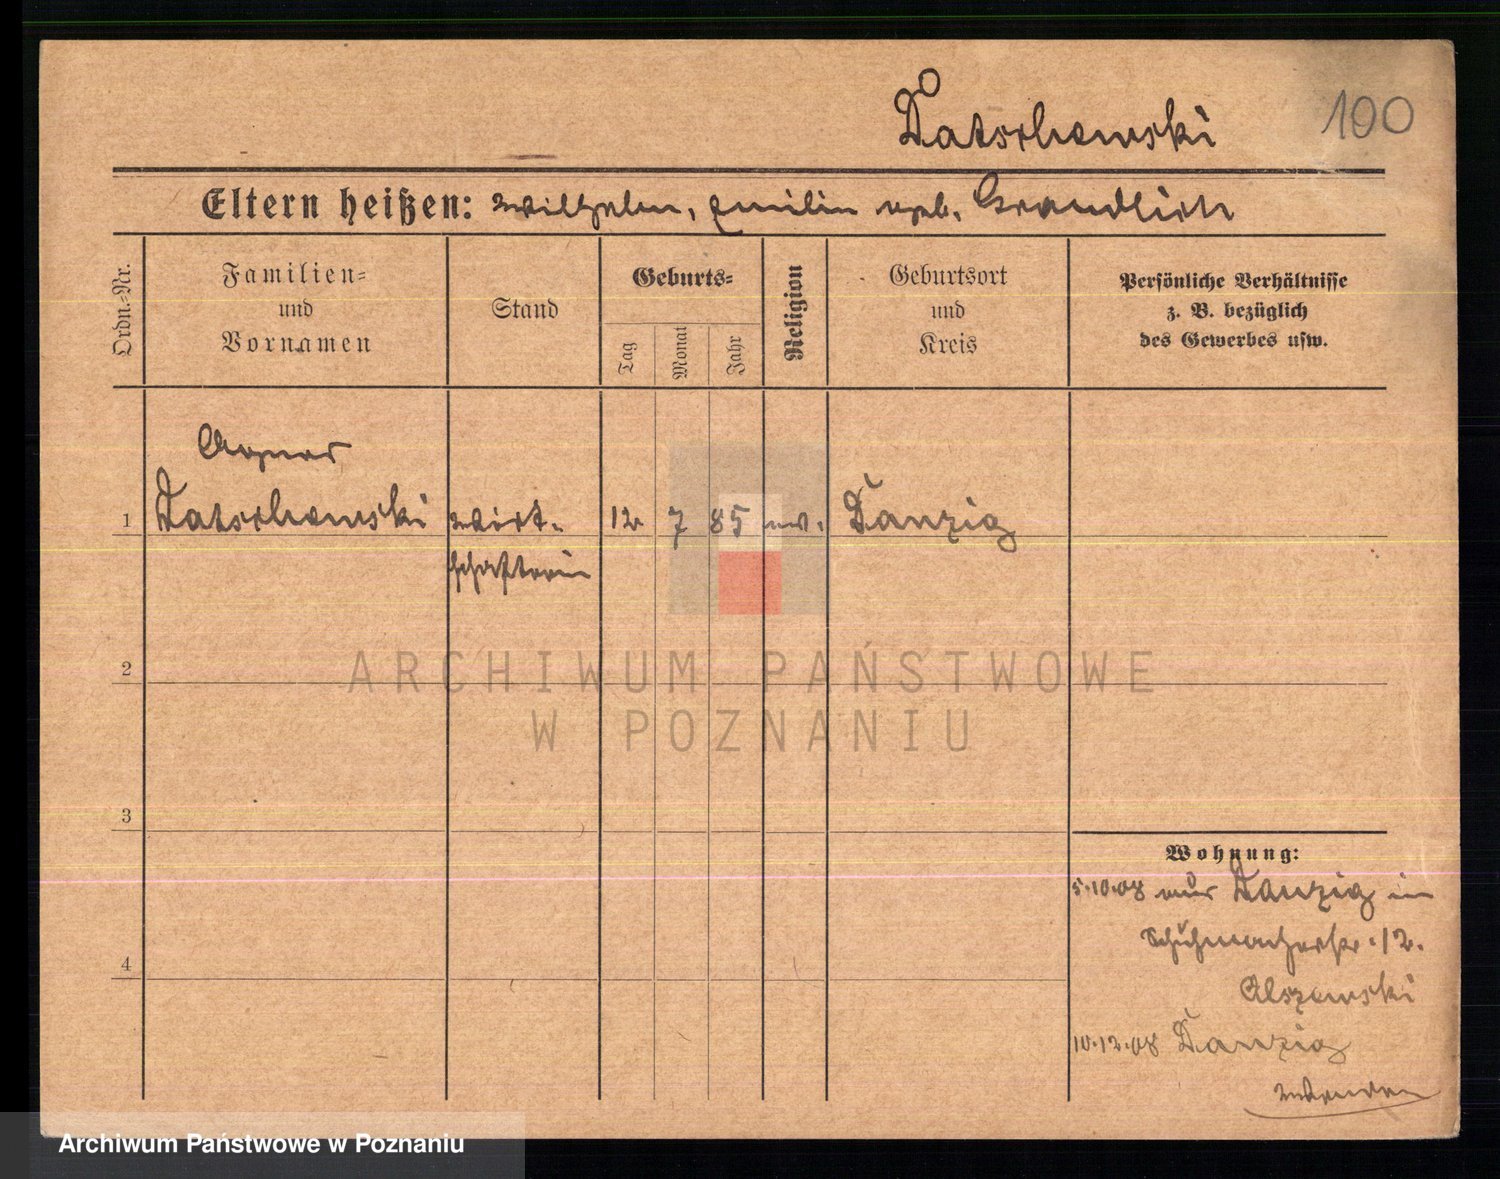 Datschewski
100
Eltern heißen: Wilhelm, Emilie geb. Grandlich
Ordn.-Nr.
Familien-
und
Vornamen
Stand
Geburts-
Tag
Monat
Jahr
Religion
Geburtsort
und
Kreis
Persönliche Verhältnisse
z. B. bezüglich
des Gewerbes usw.
Agnes
1 Datschewski Wirt- 12 7 85 ev. Danzig
schafterin
2
ARCHIWUM PAŃSTWOWE
W POZNANIU
3
Wohnung:
5.10.08 aus Danzig in
Schuhmacherstr. 12.
Olszewski
4
10.12.08 Danzig
Archiwum Państwowe w Poznaniu